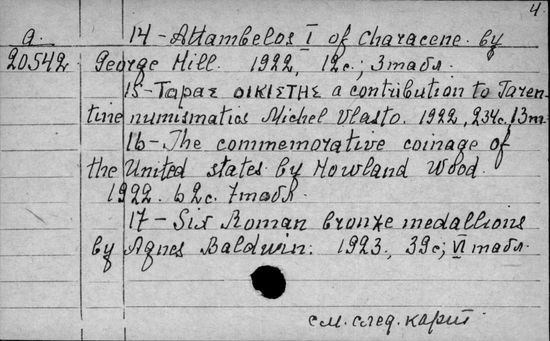 4.
a. 14-Attambelos I of Characene by
20542 George Hill. 1922, 12c.; 3табл.
15-Tapas ΟΙΚΙΣΤΗΣ a contribution to Taren-
tine numismatics Michel Vlasto. 1922, 234c, 13m
16-The commemorative coinage of
the United states by Howland Wood.
1922. 62c. 7табл.
17-Six Roman bronze medallions
by Agnes Baldwin. 1923., 39c; VI табл.
см. след. карт